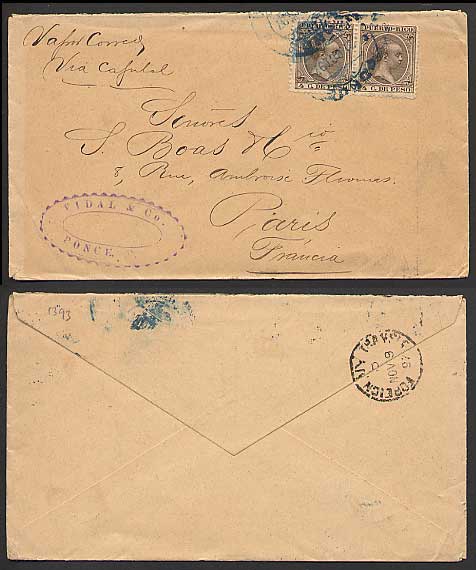 Vapor Correo,
Via Capital
PUERTO-RICO
PUERTO-RICO
4 C. DE PESO
4 C. DE PESO
Señores
S. Boas & Cio
8, Rue, Ambroise Thomas.
Paris
Francia
VIDAL & CO.
PONCE
1393
FOREIGN
NOV
9